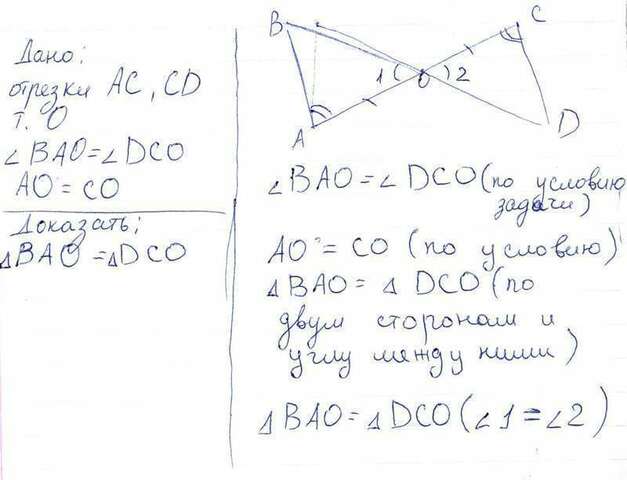 Дано:
отрезки AC, CD
т. O
∠BAO=∠DCO
AO=CO
Доказать:
△BAO=△DCO
B
C
1
O
2
A
D
∠BAO=∠DCO (по условию
задачи)
AO=CO (по условию)
△BAO=△DCO (по
двум сторонам и
углу между ними)
△BAO=△DCO (∠1=∠2)